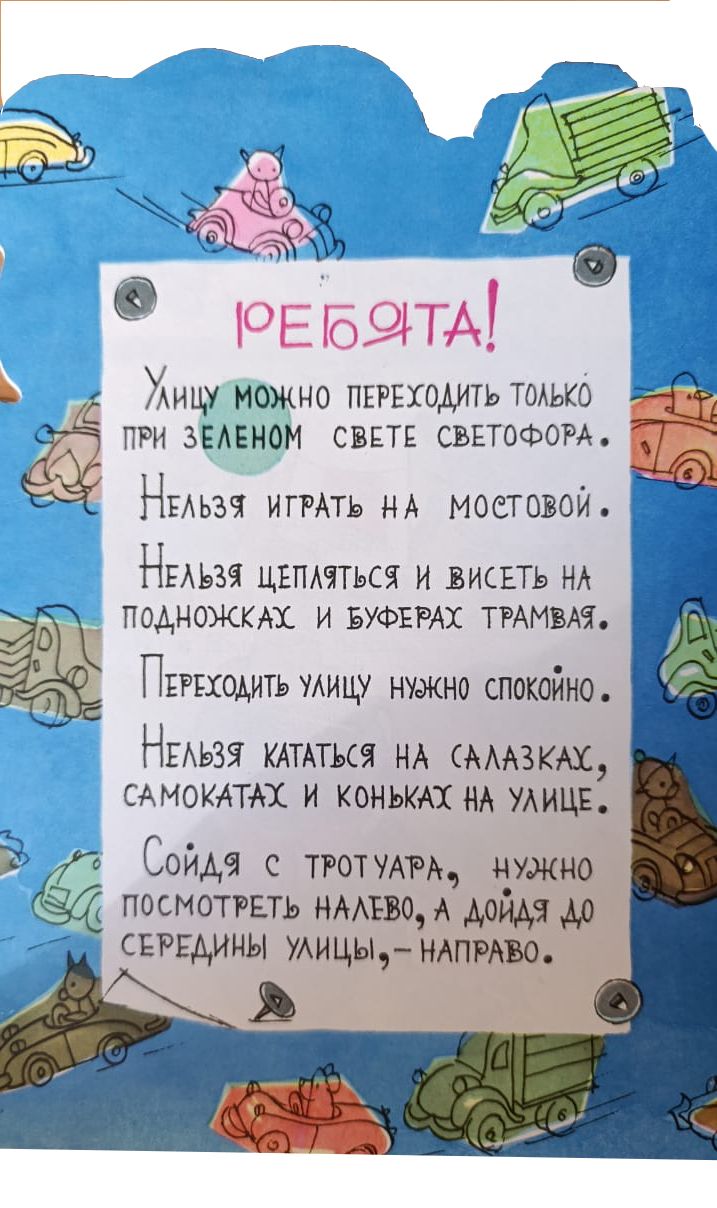 РЕБЯТА!
Улицу можно переходить только
при зеленом свете светофора.
Нельзя играть на мостовой.
Нельзя цепляться и висеть на
подножках и буферах трамвая.
Переходить улицу нужно спокойно.
Нельзя кататься на салазках,
самокатах и коньках на улице.
Сойдя с тротуара, нужно
посмотреть налево, а дойдя до
середины улицы,– направо.